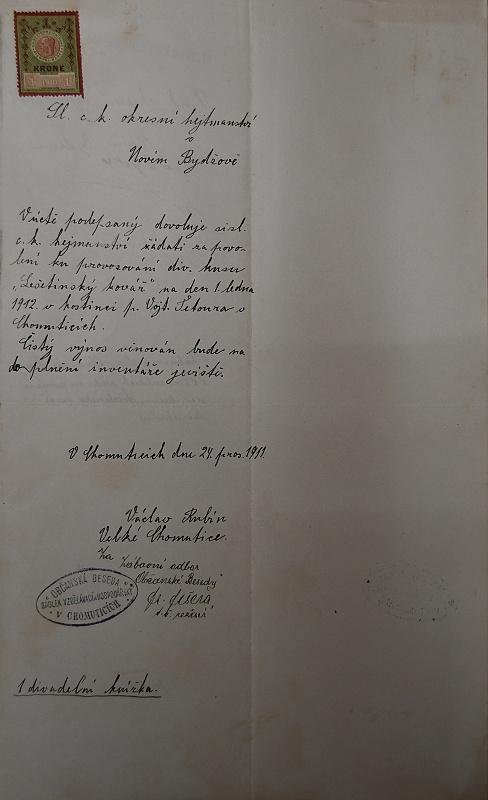 KRONE
Sl. c. k. okresní hejtmanství
v
Novém Bydžově
V úctě podepsaný dovoluje si sl.
c. k. hejmanství žádati za povo-
lení ku provozování div. kusu
„Lešetínský kovář" na den 1. ledna
1912 v hostinci p. Vojt. Šetoura v
Chomuticích.
Čistý výnos věnován bude na
doplnění inventáře jeviště.
V Chomuticích dne 24. pros. 1911.
Václav Rubín
Velké Chomutice.
Za Zábavní odbor
Občanské Besedy
t. č. režisér
OBČANSKÁ BESEDA
SPOLEK VZDĚLÁVACÍ A HOSPODÁŘSKÝ
V CHOMUTICÍCH
1 divadelní knížka.